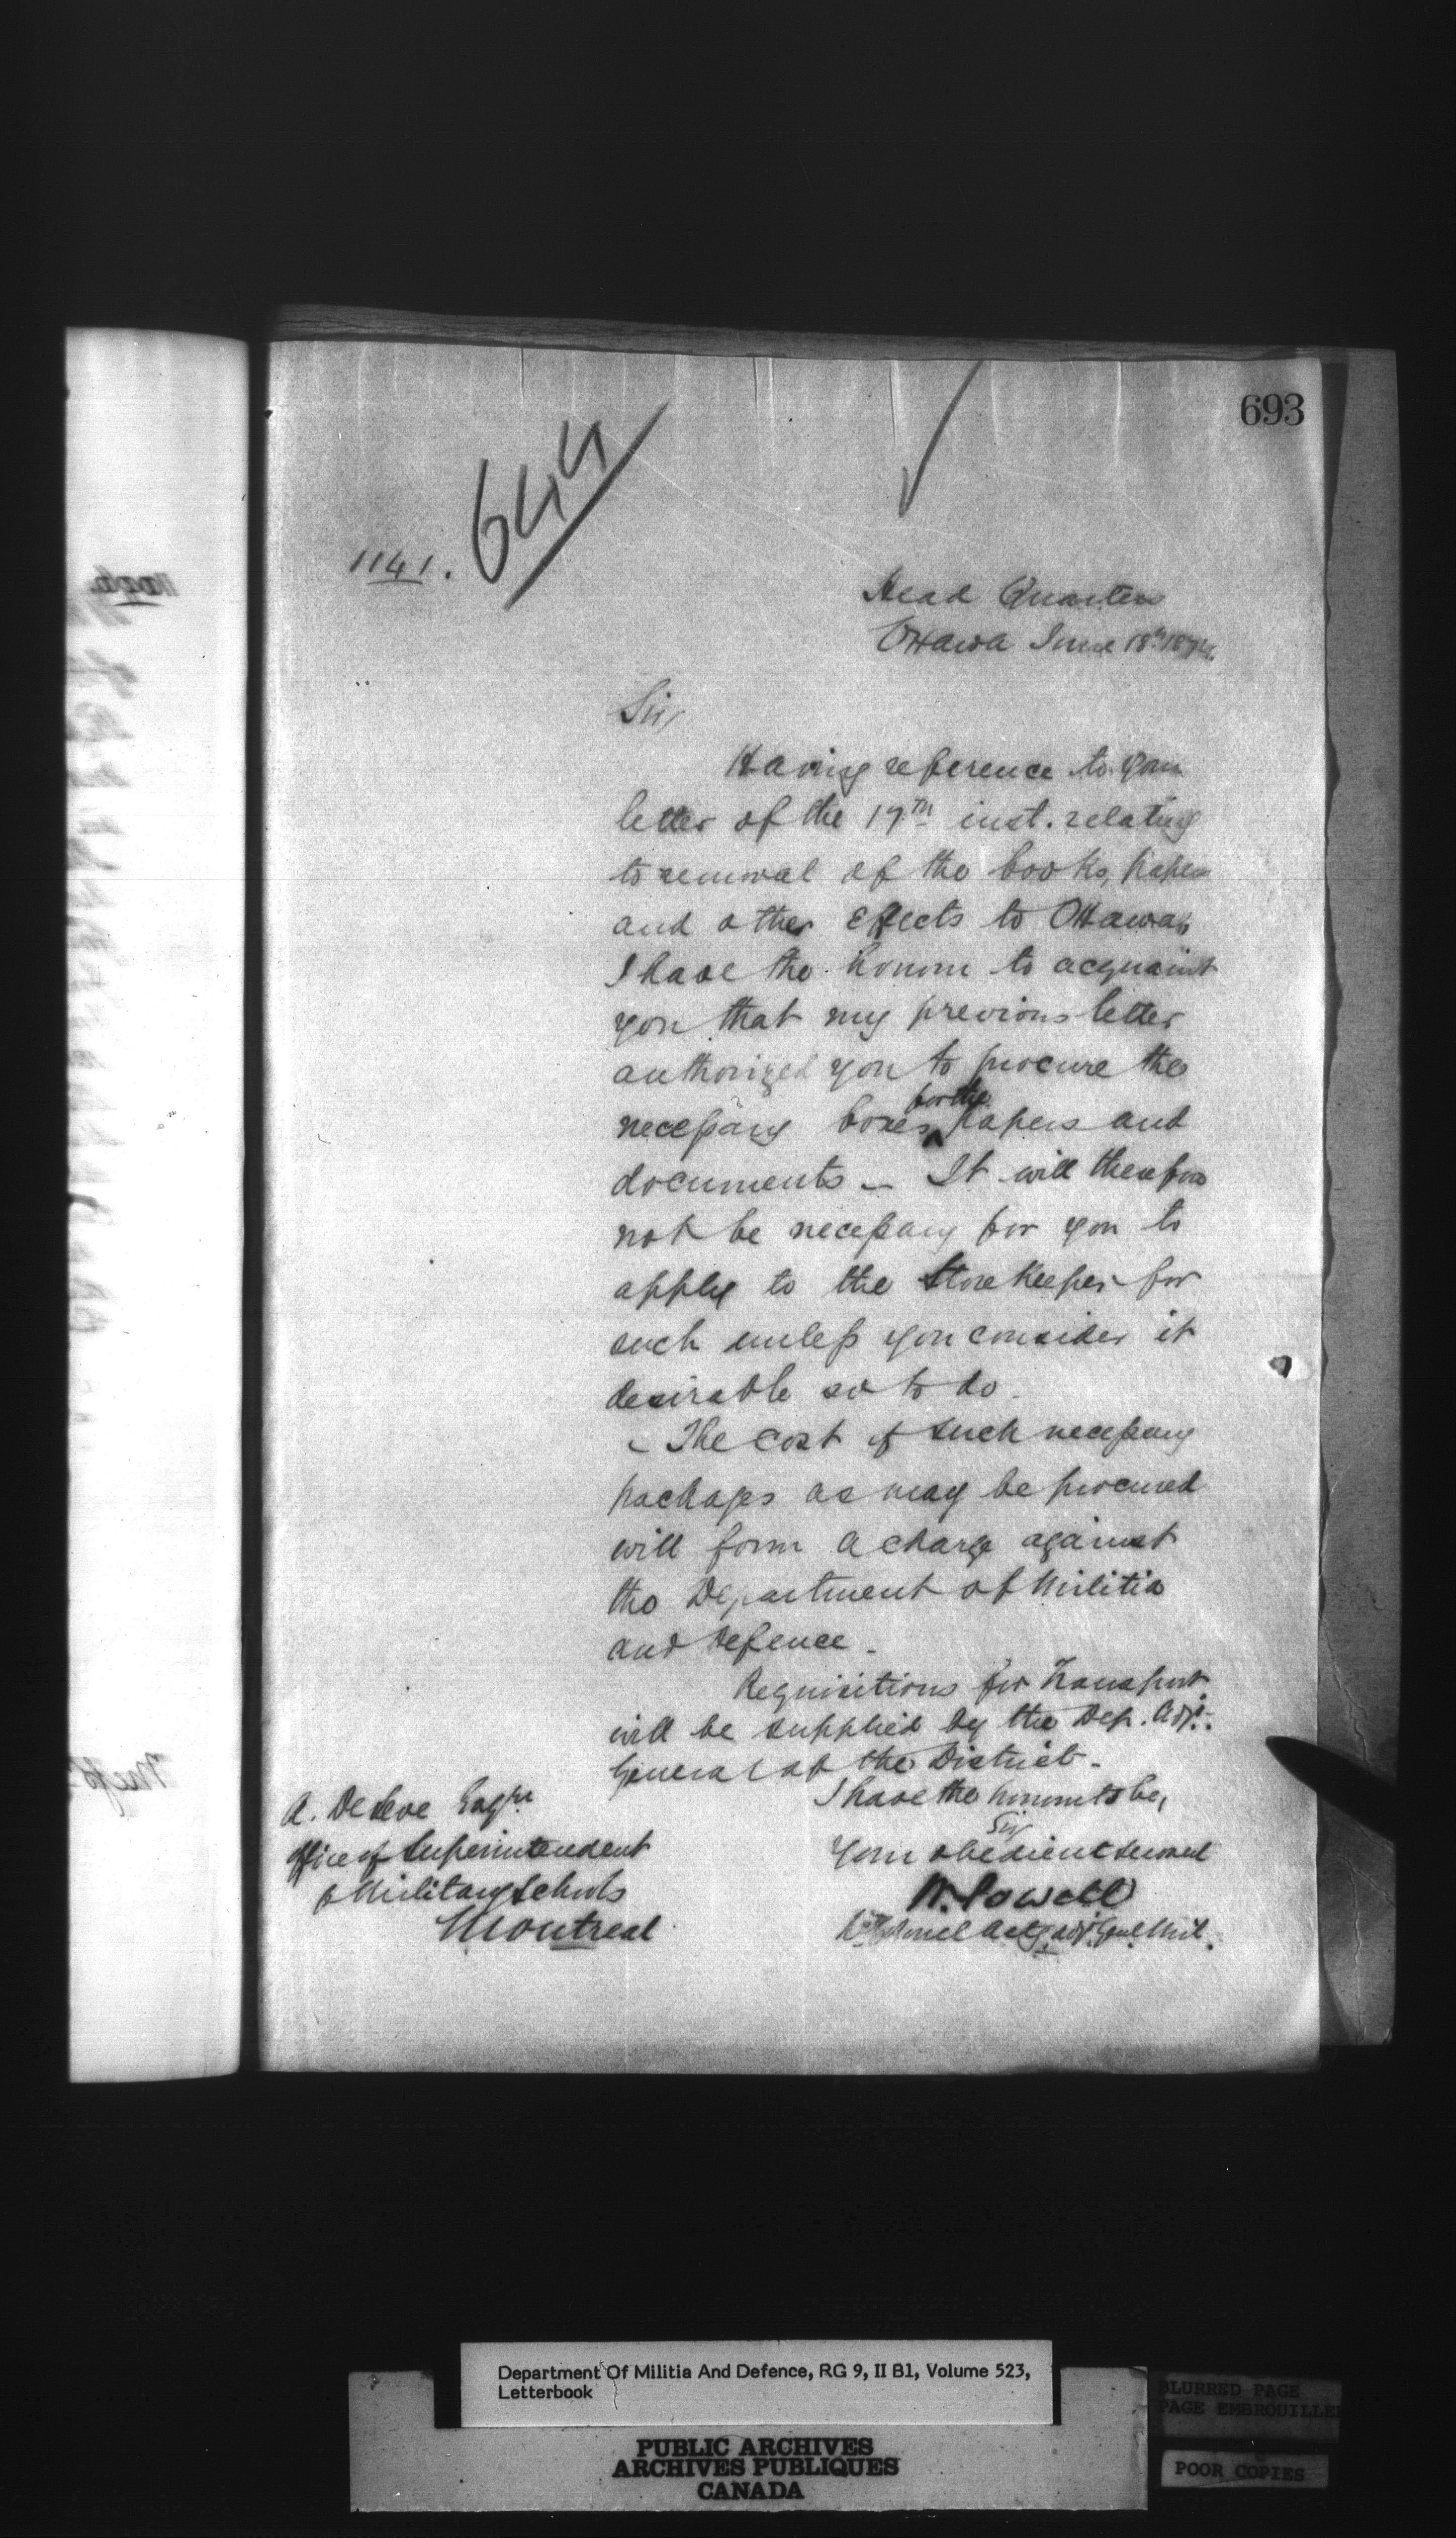 693
644
1141.
Head Quarters
Ottawa June 18th 1874.
Sir,
Having reference to your
letter of the 17th inst. relating
to removal of the books, papers
and other Effects to Ottawa,
I have the honour to acquaint
you that my previous letter
authorized you to procure the
necessary boxes for the papers and
documents — It will therefore
not be necessary for you to
apply to the Storekeeper for
such unless you consider it
desirable so to do.
— The cost of such necessary
packages as may be procured
will form a charge against
the Department of Militia
and Defence —
Requisitions for Transport
will be supplied by the Dep. Adjt.
General of the District —
I have the honour to be,
Sir
Your obedient servant
W. Powell
Lt Colonel Actg Adjt Genl Mil.
A. DeLeve Esqre
Office of Superintendent
of Military Schools
Montreal
Department Of Militia And Defence, RG 9, II B1, Volume 523,
Letterbook
PUBLIC ARCHIVES
ARCHIVES PUBLIQUES
CANADA
BLURRED PAGE
PAGE EMBROUILLEE
POOR COPIES